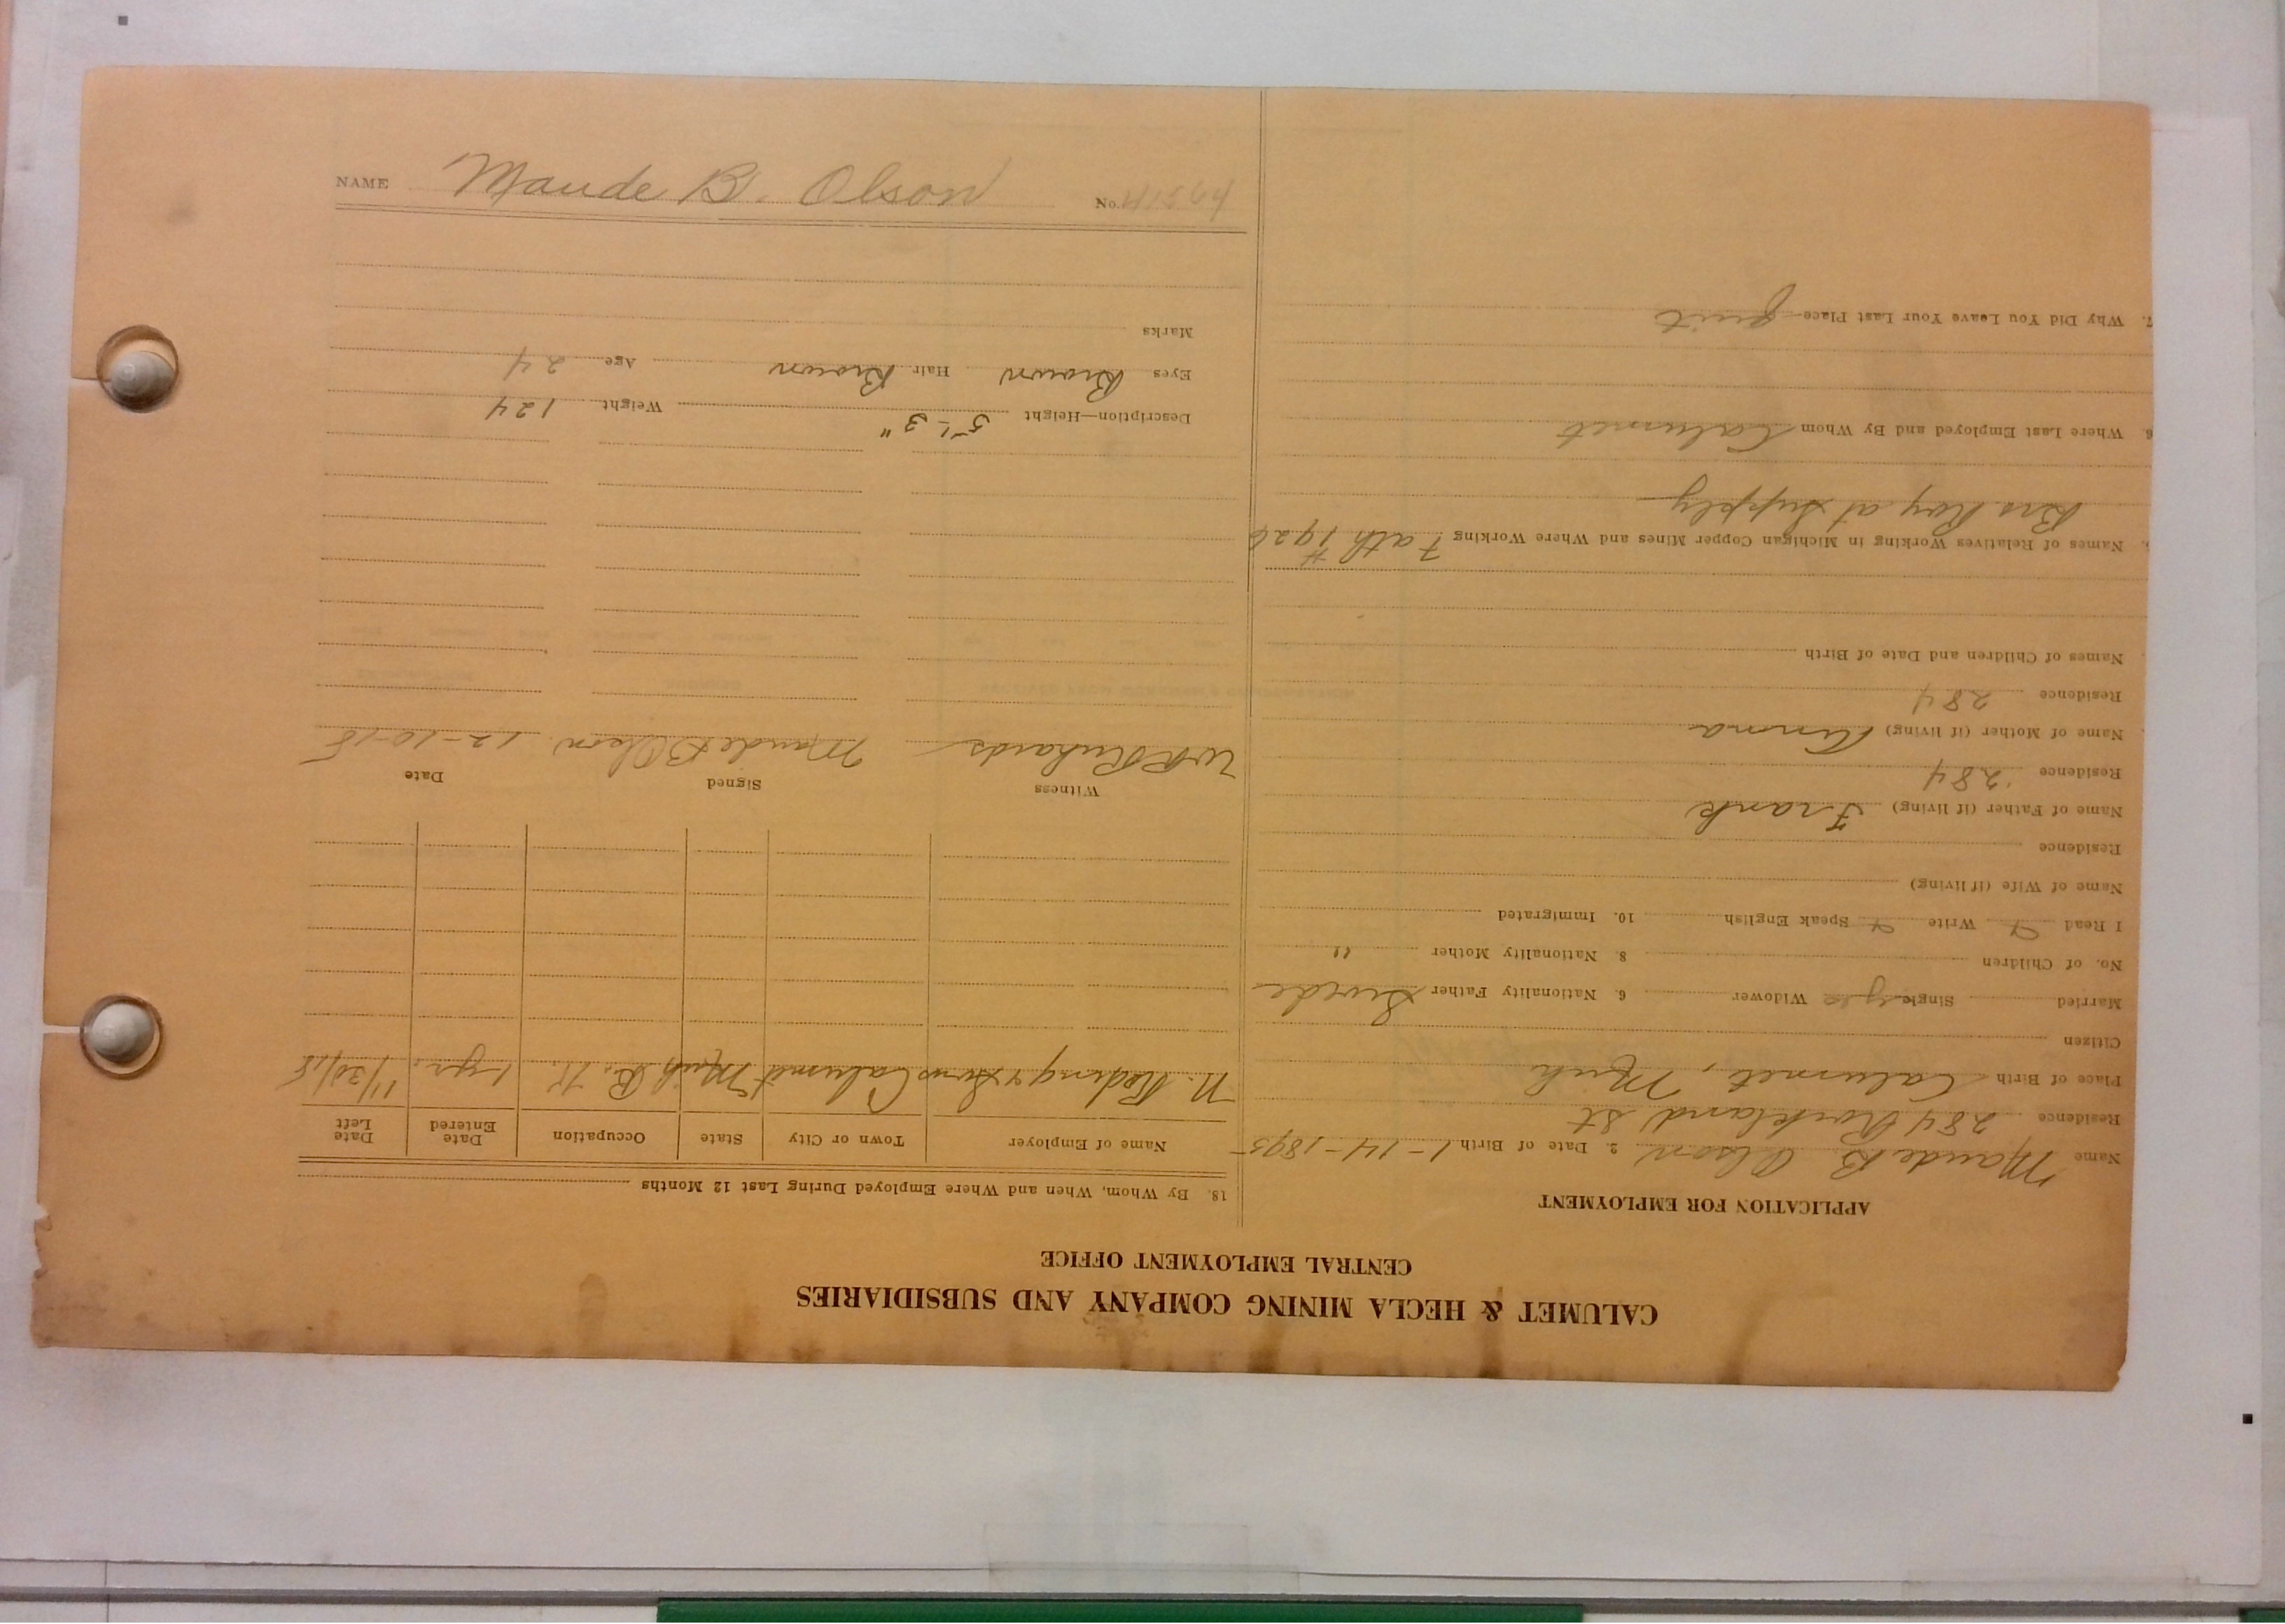 CALUMET & HECLA MINING COMPANY AND SUBSIDIARIES
CENTRAL EMPLOYMENT OFFICE
APPLICATION FOR EMPLOYMENT
Name Maude B. Olson 2. Date of Birth 1-14-1895
Residence 284 Rockland St
Place of Birth Calumet, Mich
Citizen
Married Single yes Widower 6. Nationality Father Swede
No. of Children 8. Nationality Mother "
I Read Y Write Y Speak English 10. Immigrated
Name of Wife (if living)
Residence
Name of Father (if living) Frank
Residence 284
Name of Mother (if living)
Residence 284
Names of Children and Date of Birth
Names of Relatives Working in Michigan Copper Mines and Where Working Fath #1926
Bro Roy at Supply
6. Where Last Employed and By Whom Calumet
7. Why Did You Leave Your Last Place quit
18. By Whom, When and Where Employed During Last 12 Months
Name of Employer Town or City State Occupation Date Entered Date Left
& Sons Calumet Mich B.K. 1 yr. 11/30/18
Witness Signed Date
W R Richards Maude B Olson 12-10-18
Description—Height 5'-3" Weight 124
Eyes Brown Hair Brown Age 24
Marks
NAME Maude B. Olson No.